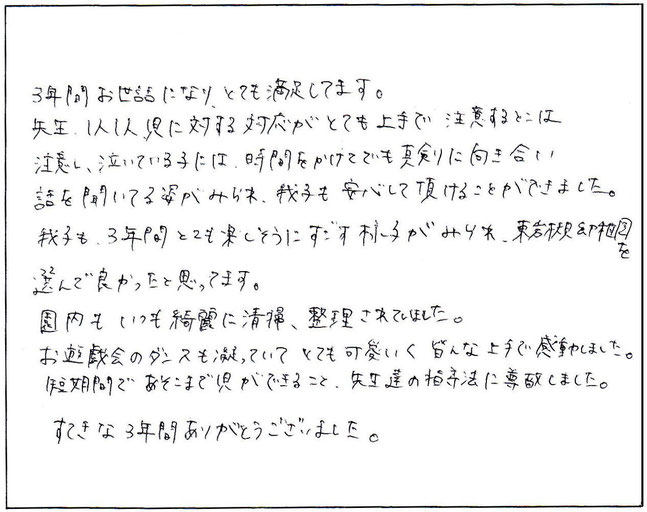 3年間お世話になり、とても満足してます。
先生、1人1人、児に対する対応がとても上手で 注意するとこは
注意し、泣いている子には、時間をかけてでも真剣に向き合い
話を聞いてる姿がみられ、我子も安心して頂けることができました。
我子も、3年間とても楽しそうにすごす様子がみられ、東岩槻幼稚園を
選んで良かったと思ってます。
園内も いつも綺麗に清掃、整理されていました。
お遊戯会のダンスも凝っていて とても可愛いく 皆んな上手で感動しました。
短期間で あそこまで児ができること、先生達の指導法に尊敬しました。
すてきな3年間ありがとうございました。